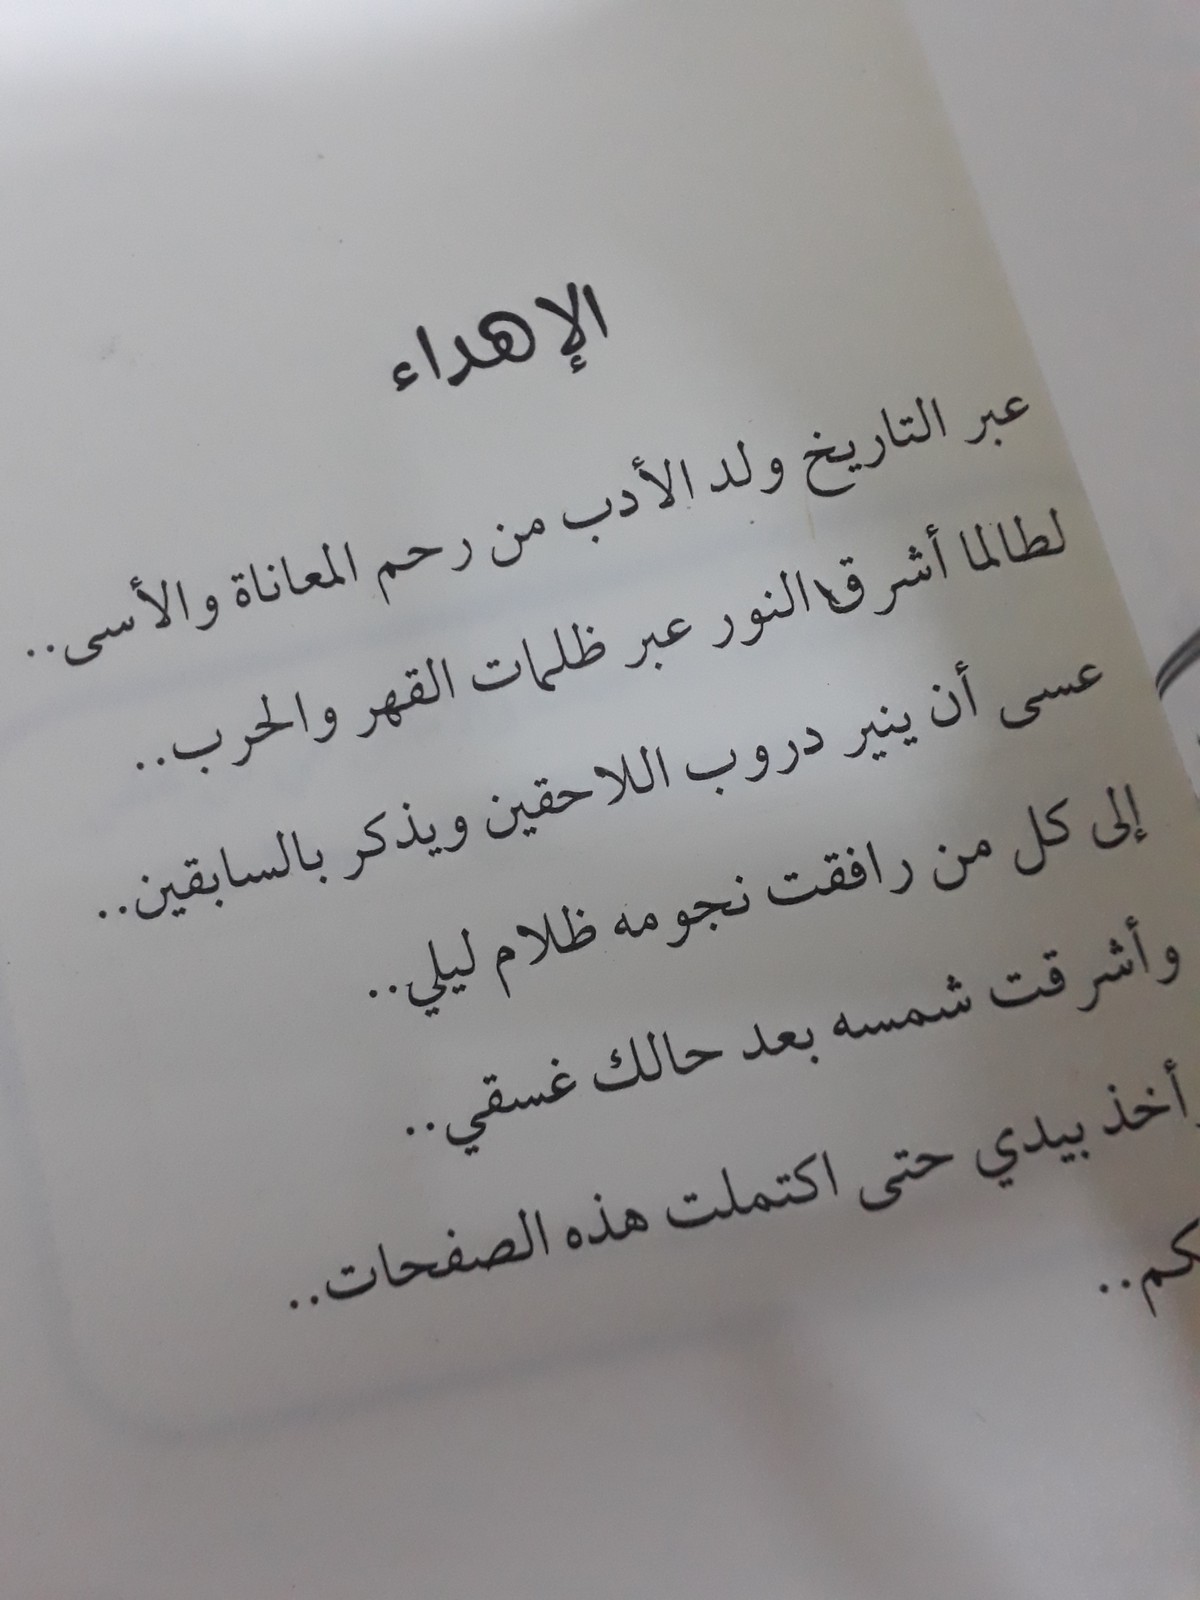 الإهداء
عبر التاريخ ولد الأدب من رحم المعاناة والأسى..
لطالما أشرق النور عبر ظلمات القهر والحرب..
عسى أن ينير دروب اللاحقين ويذكر بالسابقين..
إلى كل من رافقت نجومه ظلام ليلي..
وأشرقت شمسه بعد حالك غسقي..
أخذ بيدي حتى اكتملت هذه الصفحات..